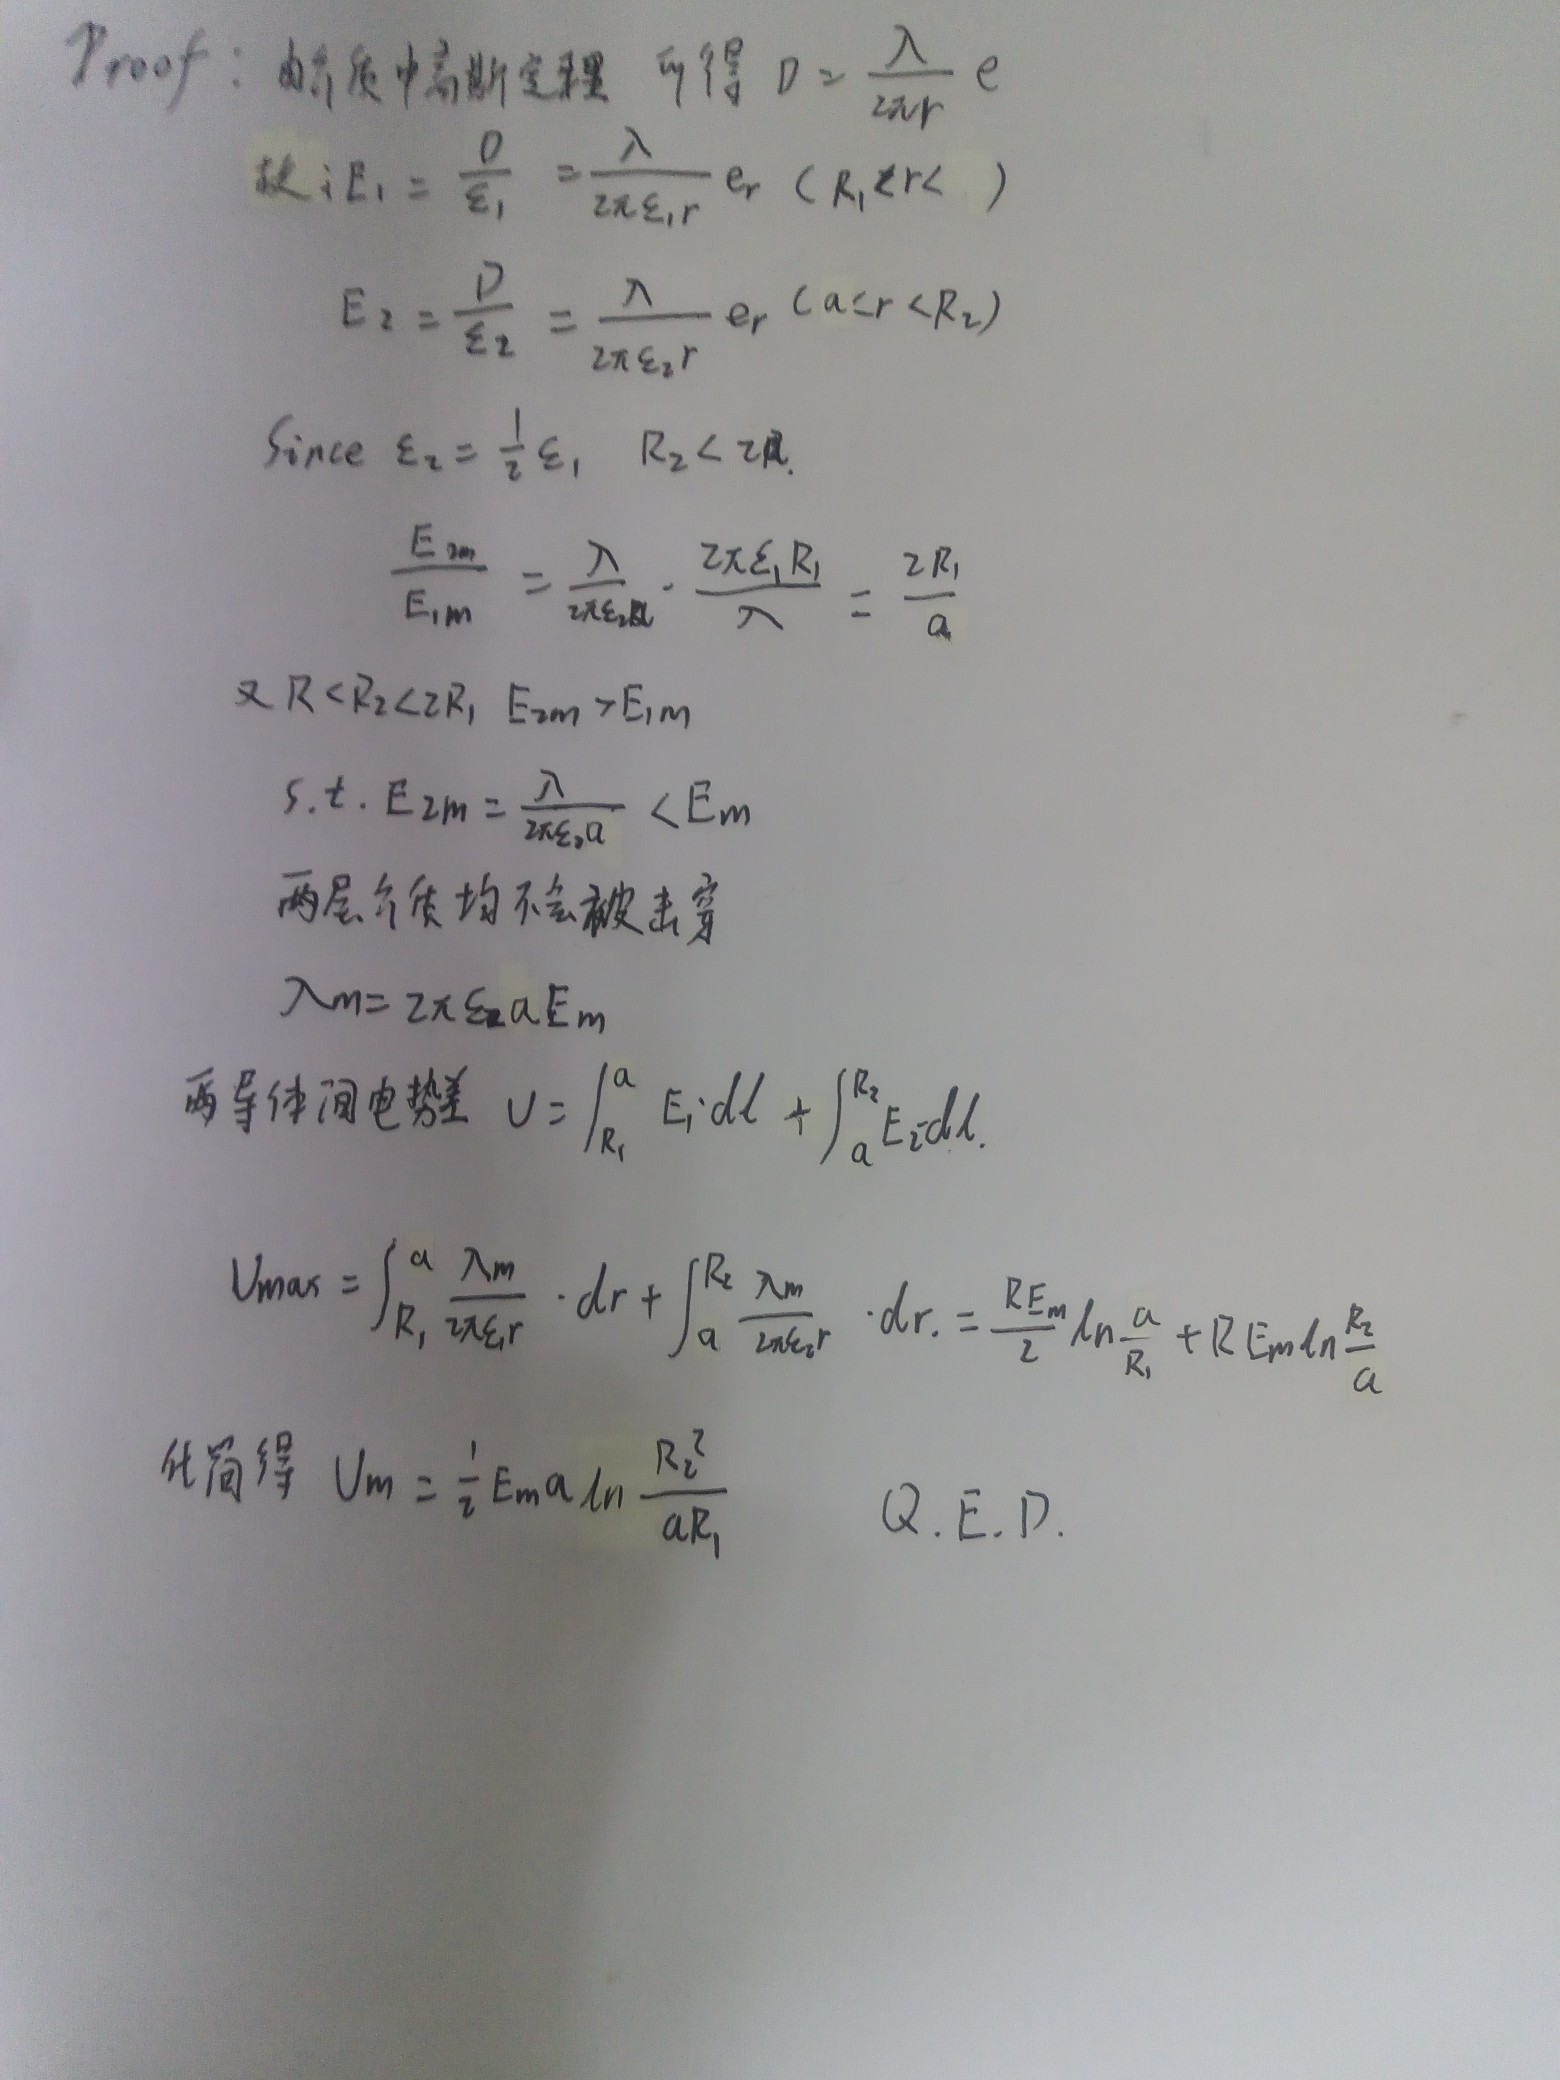 Proof: 由介质中高斯定理 可得 D = λ/(2πr) e
故: E₁ = D/ε₁ = λ/(2πε₁r) eᵣ (R₁<r< )
E₂ = D/ε₂ = λ/(2πε₂r) eᵣ (a<r<R₂)
Since ε₂ = 1/2 ε₁ R₂<2R.
E₂ₘ/E₁ₘ = λ/(2πε₂a) · 2πε₁R₁/λ = 2R₁/a
又 R<R₂<2R₁ E₂ₘ>E₁ₘ
s.t. E₂ₘ = λ/(2πε₂a) <Eₘ
两层介质均不会被击穿
λₘ = 2πε₂aEₘ
两导体间电势差 U = ∫_{R₁}^{a} E₁·dl + ∫_{a}^{R₂} E₂·dl.
Umax = ∫_{R₁}^{a} λₘ/(2πε₁r) ·dr + ∫_{a}^{R₂} λₘ/(2πε₂r) ·dr. = REₘ/2 ln a/R₁ + REₘ ln R₂/a
化简得 Uₘ = 1/2 Eₘa ln R₂²/(aR₁) Q.E.D.